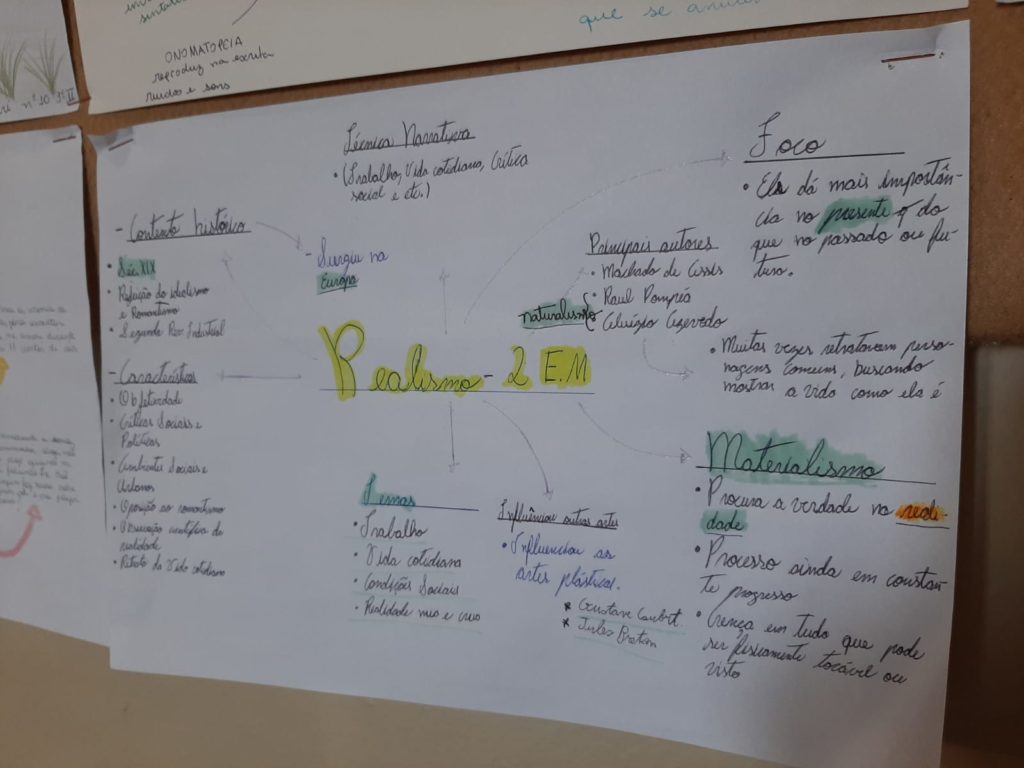 que se anula
ONOMATOPEIA
reproduz na escrita
ruídos e sons
nº 10 3º II
Técnica Narrativa
• (Trabalho, Vida cotidiana, Crítica
social e etc.)
Foco
• Ela dá mais importân-
cia no presente q do
que no passado ou fu-
turo.
- Contexto histórico
• Séc XIX
• Refeição do idealismo
e Romantismo
• Segunda Rev Industrial
- Surgiu na
Europa
Principais autores
• Machado de Assis
naturalismo { • Raul Pompéia
• Aluízio Azevedo
• Muitas vezes retratavam perso-
nagens comuns, buscando
mostrar a vida como ela é
Realismo - 2 E.M
- Características
• Objetividade
• Críticas Sociais e
Políticas
• Ambientes Sociais e
Urbanos
• Oposição ao romantismo
• Observação científica da
realidade
• Retrato da Vida cotidiana
Temas
• Trabalho
• Vida cotidiana
• Condições Sociais
• Realidade nua e crua
Influênciou outras artes
• Influenciou as
artes plásticas.
* Gustave Courbet.
* Jules Breton
Materialismo
• Procura a verdade na reali-
dade
• Processo ainda em constan-
te progresso
• Crença em tudo que pode
ser fisicamente tocável ou
visto